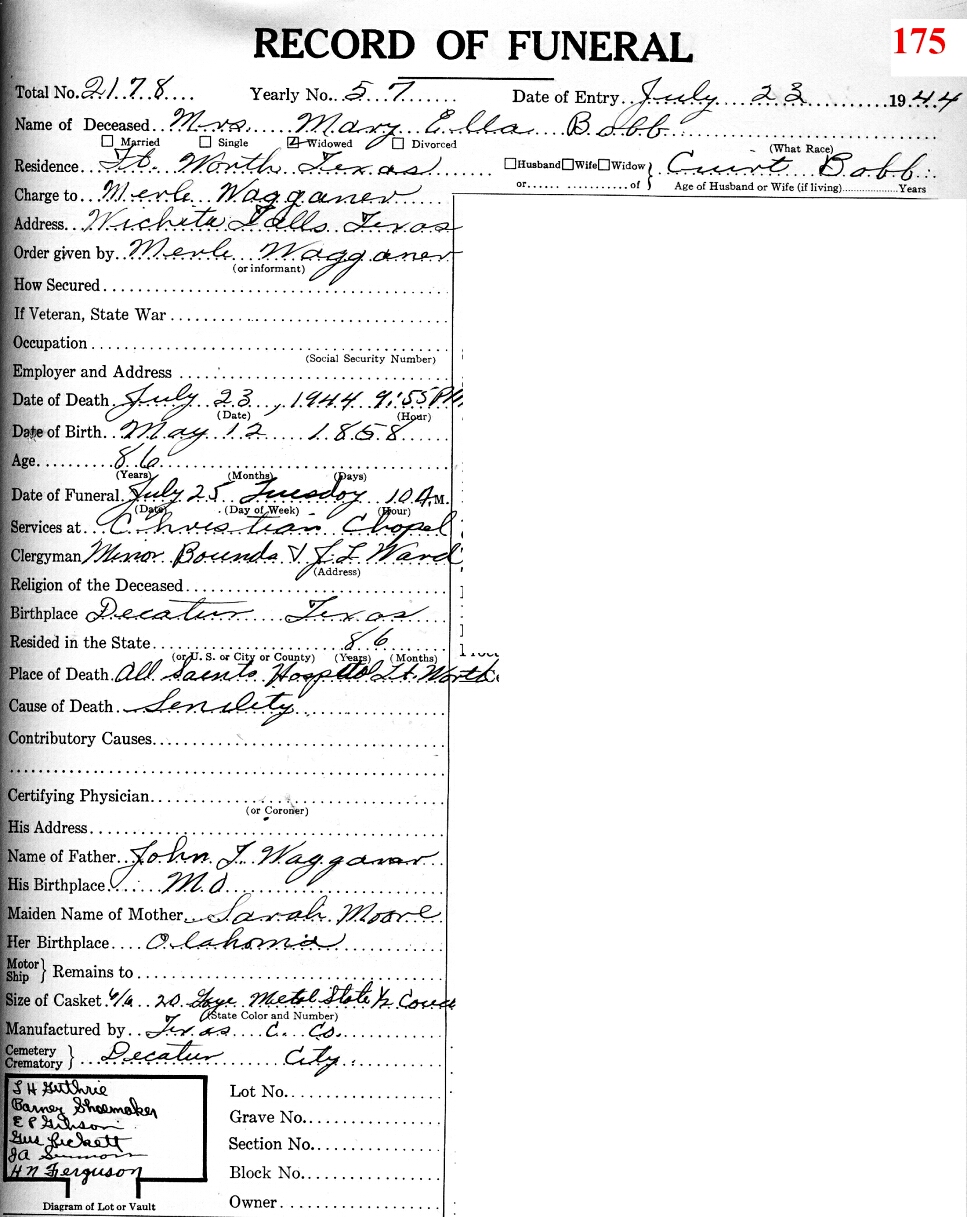 RECORD OF FUNERAL
175
Total No. 2178 Yearly No. 57 Date of Entry July 23 1944
Name of Deceased Mrs. Mary Ella Bobb
Married Single Widowed Divorced (What Race)
Residence Ft. Worth Texas Husband Wife Widow } Curt Bobb
or of Age of Husband or Wife (if living) Years
Charge to Merle Wagganer
Address Wichita Falls Texas
Order given by Merle Wagganer
(or informant)
How Secured
If Veteran, State War
Occupation
(Social Security Number)
Employer and Address
Date of Death July 23, 1944 9:55 PM
(Date) (Hour)
Date of Birth May 12 1858
Age 86
(Years) (Months) (Days)
Date of Funeral July 25 Tuesday 10 A M.
(Date) (Day of Week) (Hour)
Services at Christian Chapel
Clergyman Minor Bounds & J. L. Ward
(Address)
Religion of the Deceased
Birthplace Decatur Texas
Resided in the State 86
(or U. S. or City or County) (Years) (Months)
Place of Death All Saints Hospital Ft. Worth
Cause of Death Senility
Contributory Causes
Certifying Physician
(or Coroner)
His Address
Name of Father John T. Wagganer
His Birthplace MO
Maiden Name of Mother Sarah Moore
Her Birthplace Olahoma
Motor Ship } Remains to
Size of Casket 6/6 20 Metal State 1/2
(State Color and Number)
Manufactured by Texas C. Co.
Cemetery Crematory } Decatur City
Lot No.
Grave No.
Section No.
Block No.
Owner
L H Guthrie
Barney Shoemaker
E P Gibson
Gus
J A
H N Ferguson
Diagram of Lot or Vault